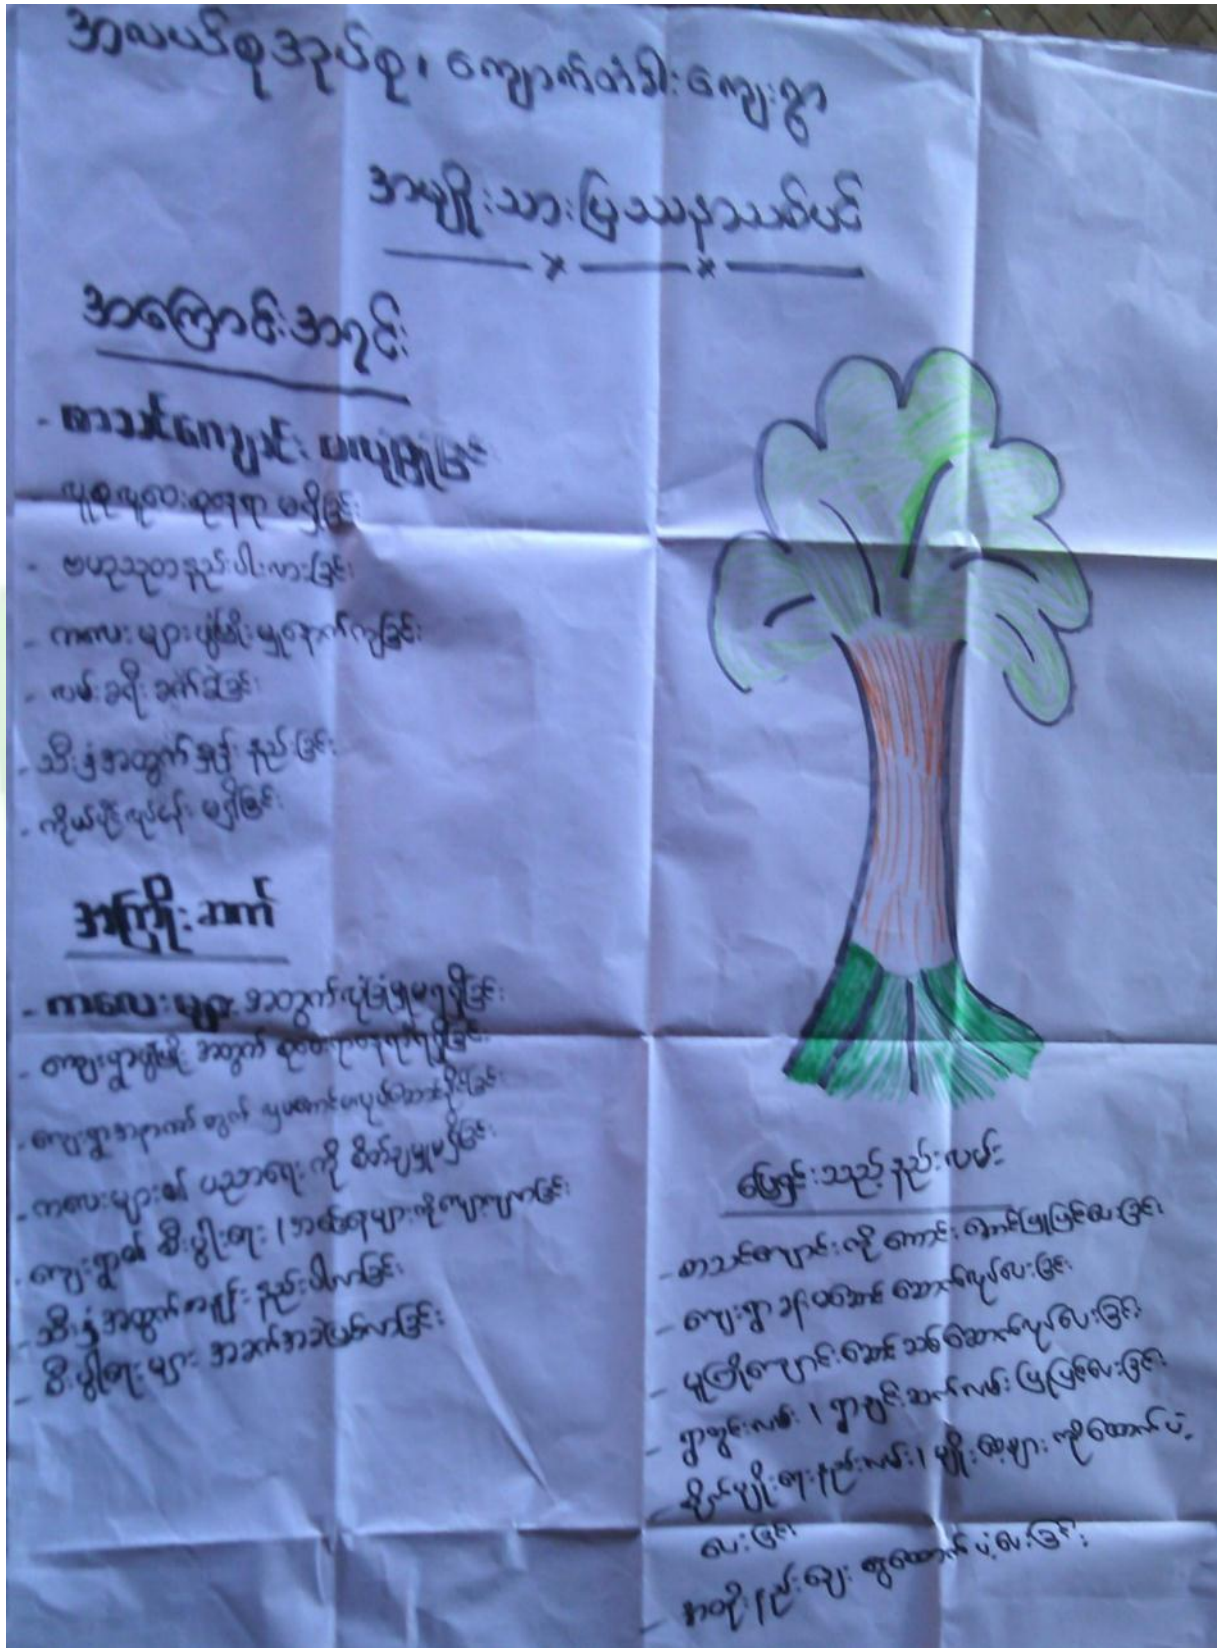 အလယ်စုအုပ်စု၊ ကျောက်တံခါးကျေးရွာ
အမျိုးသားပြဿနာသစ်ပင်
အကြောင်းအရင်း
- စာသင်ကျောင်း မလုံခြုံခြင်း
လူစုလူဝေးစုနေရာ မရှိခြင်း
- ဗဟုသုတနည်းပါးလာခြင်း
- ကလေးများဖွံ့ဖြိုးမှုနောက်ကျခြင်း
- လမ်းခရီးခက်ခဲခြင်း
- သီးနှံအထွက်နှုန်းနည်းခြင်း
- ကိုယ်ပိုင်လုပ်ငန်း မရှိခြင်း
အကြိုးဆက်
- ကလေးများ အတွက်လုံခြုံမှုမရရှိခြင်း
- ကျေးရွာဖွံ့ဖြိုး အတွက်
- ကျေးရွာအနာဂတ်အတွက်
- ကလေးများ၏ ပညာရေးကို စိတ်ချမှုမရှိခြင်း
- ကျေးရွာ၏ စီးပွါးရေး၊
- သီးနှံအထွက်နှုန်း နည်းပါးလာခြင်း
- စီးပွါးရေးများ အခက်အခဲဖြစ်လာခြင်း
ဖြေရှင်းသည့်နည်းလမ်း
- စာသင်ကျောင်းကို ကောင်းအောင်ပြုပြင်ပေးခြင်း
- ကျေးရွာခန်းမဆောင် ဆောက်လုပ်ပေးခြင်း
- မူကြိုကျောင်းဆောင်သစ်ဆောက်လုပ်ပေးခြင်း
- ရွာတွင်းလမ်း၊ ရွာချင်းဆက်လမ်းပြုပြင်ပေးခြင်း
- စိုက်ပျိုးရေးနည်းလမ်း၊ မျိုးစေ့များ ကိုထောက်ပံ့
ပေးခြင်း
- အတိုးနည်းချေး ငွေထောက်ပံ့ပေးခြင်း